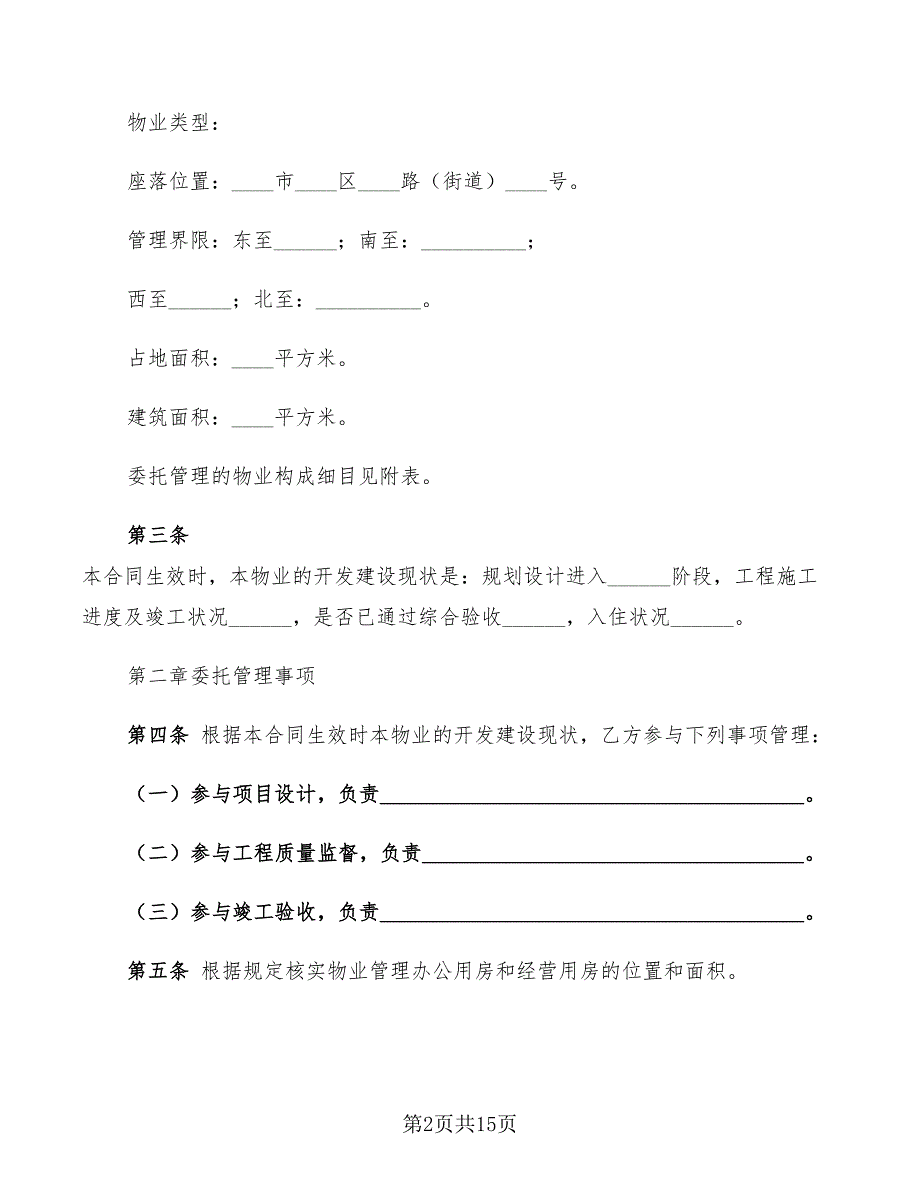 物业类型：
座落位置：____市____区____路（街道）____号。
管理界限：东至______；南至：__________；
西至______；北至：__________。
占地面积：____平方米。
建筑面积：____平方米。
委托管理的物业构成细目见附表。
第三条
本合同生效时，本物业的开发建设现状是：规划设计进入______阶段，工程施工
进度及竣工状况______，是否已通过综合验收______，入住状况______。
第二章委托管理事项
第四条 根据本合同生效时本物业的开发建设现状，乙方参与下列事项管理：
（一）参与项目设计，负责________________________________________。
（二）参与工程质量监督，负责____________________________________。
（三）参与竣工验收，负责________________________________________。
第五条 根据规定核实物业管理办公用房和经营用房的位置和面积。
第2页共15页